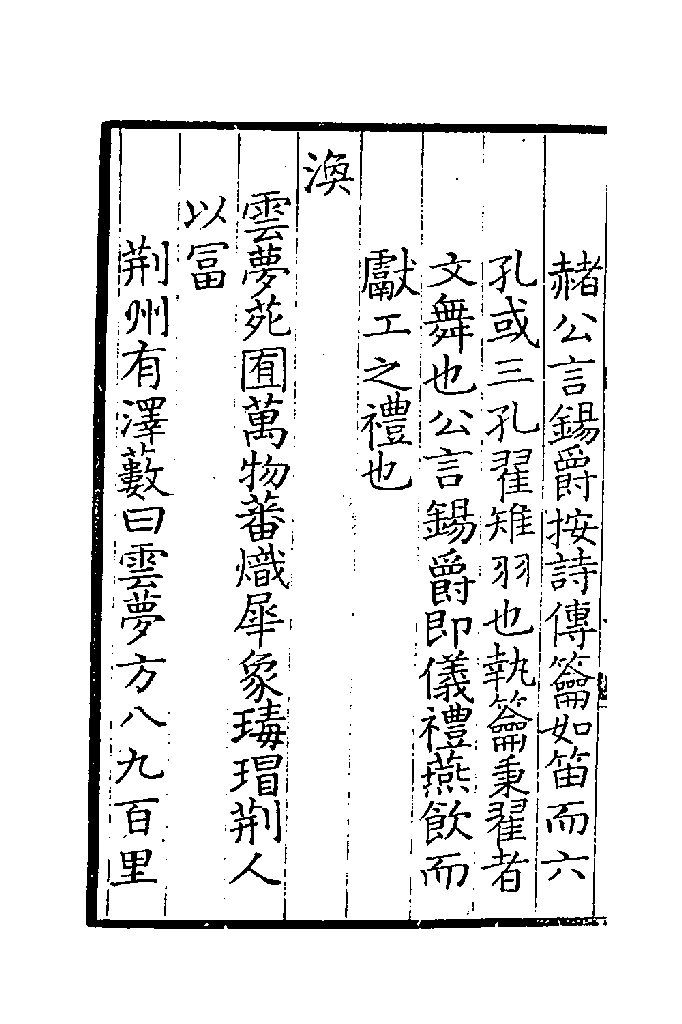 赭公言錫爵按詩傳籥如笛而六
孔或三孔翟雉羽也執籥秉翟者
文舞也公言錫爵即儀禮燕飲而
獻工之禮也
渙
雲夢苑囿萬物蕃熾犀象瑇瑁荆人
以冨
荆州有澤藪曰雲夢方八九百里